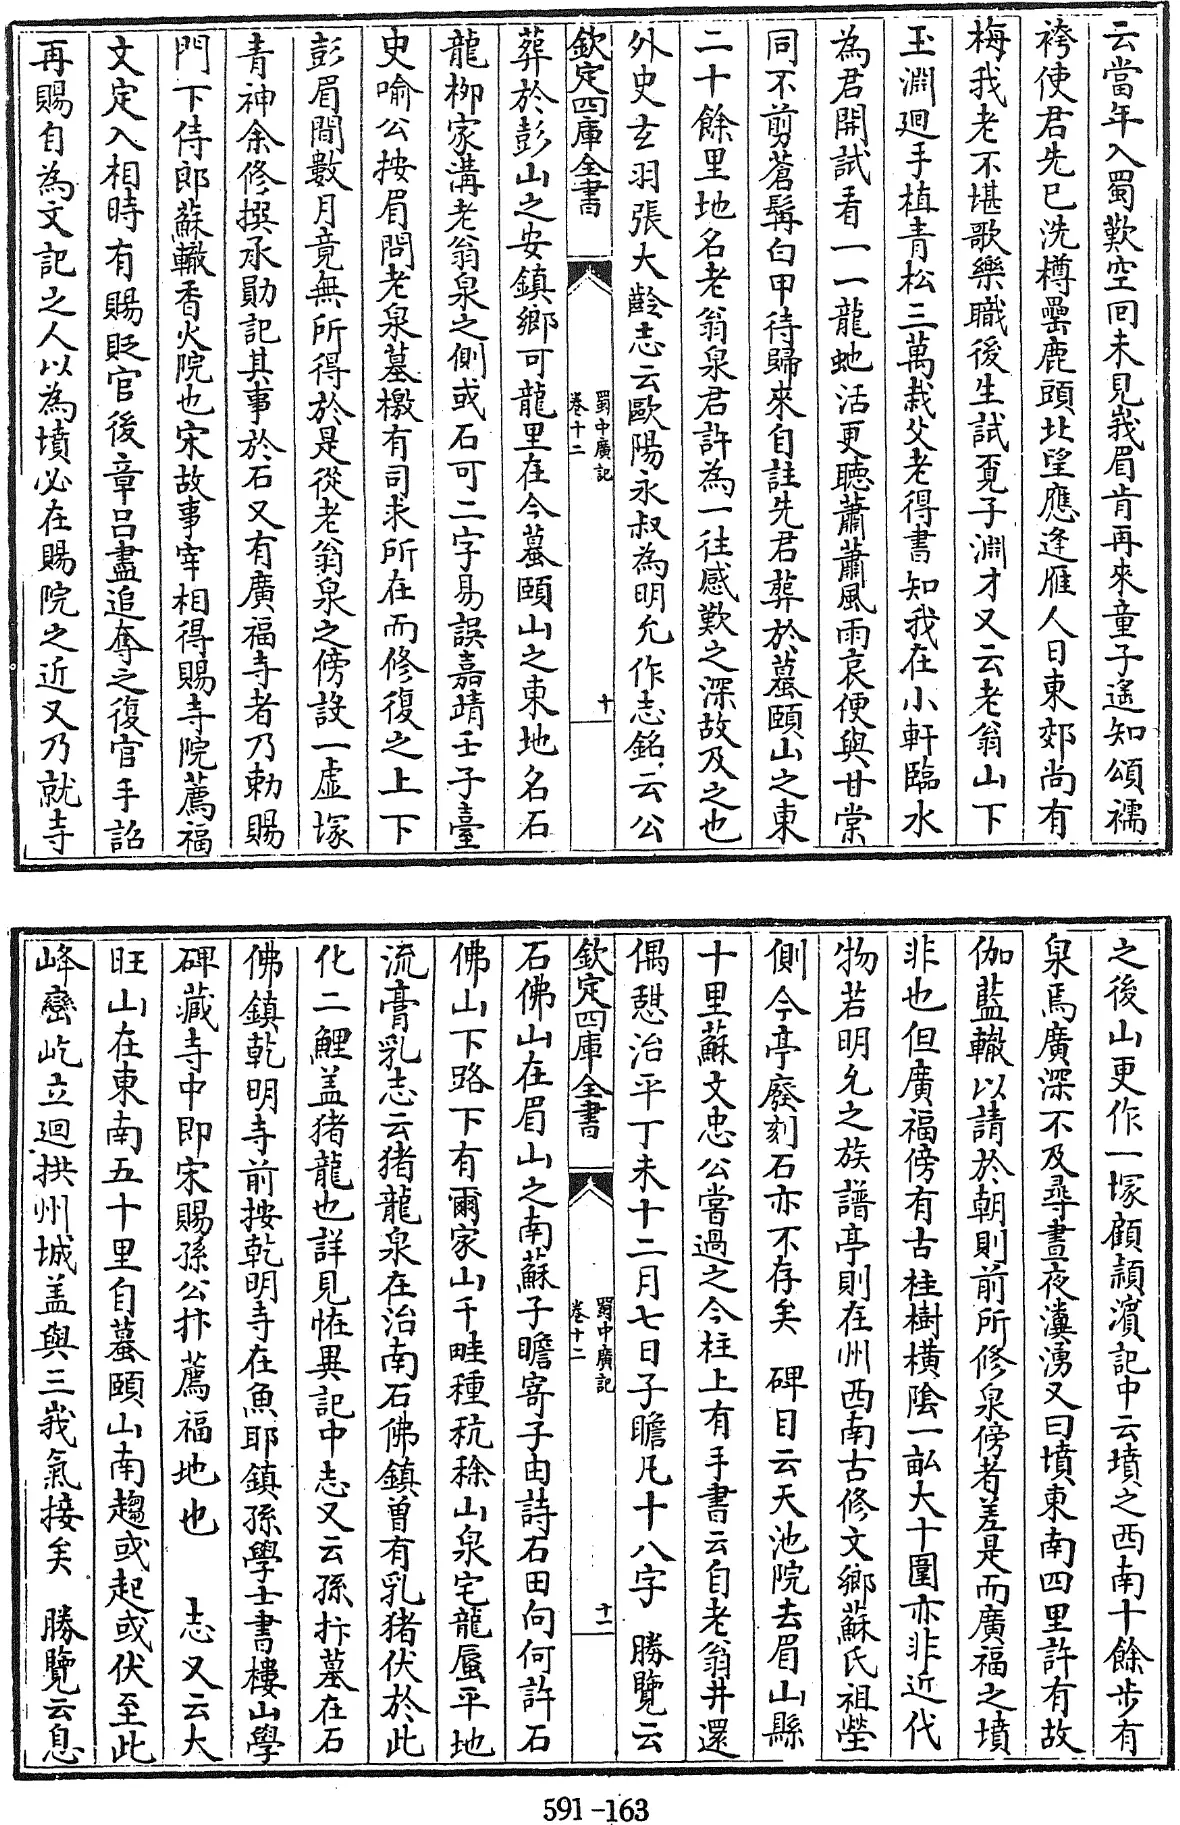 云當年入蜀歎空回未見峩眉肯再來童子遙知頌襦
袴使君先已洗樽罍鹿頭北望應逢雁人日東郊尚有
梅我老不堪歌樂職後生試覓子淵才又云老翁山下
玉淵迴手植青松三萬栽父老得書知我在小軒臨水
為君開試看一一龍虵活更聽蕭蕭風雨哀便與甘棠
同不剪蒼髯白甲待歸來自註先君葬於蟇頤山之東
二十餘里地名老翁泉君許為一往感歎之深故及之也
外史玄羽張大齡志云歐陽永叔為明允作志銘云公
欽定四庫全書
蜀中廣記
卷十二
十
葬於彭山之安鎮鄉可龍里在今蟇頤山之東地名石
龍栁家溝老翁泉之側或石可二字易誤嘉靖壬子臺
史喻公按眉問老泉墓檄有司求所在而修復之上下
彭眉間數月竟無所得於是從老翁泉之傍設一虛塚
青神余修撰承勛記其事於石又有廣福寺者乃勅賜
門下侍郎蘇轍香火院也宋故事宰相得賜寺院薦福
文定入相時有賜貶官後章呂盡追奪之復官手詔
再賜自為文記之人以為墳必在賜院之近又乃就寺
之後山更作一塚顧頴濵記中云墳之西南十餘步有
泉焉廣深不及尋晝夜瀵湧又曰墳東南四里許有故
伽藍轍以請於朝則前所修泉傍者差是而廣福之墳
非也但廣福傍有古桂樹橫陰一畝大十圍亦非近代
物若明允之族譜亭則在州西南古修文鄉蘇氏祖塋
側今亭廢刻石亦不存矣　碑目云天池院去眉山縣
十里蘇文忠公嘗過之今柱上有手書云自老翁井還
偶憇治平丁未十二月七日子瞻凡十八字　勝覽云
欽定四庫全書
蜀中廣記
卷十二
十一
石佛山在眉山之南蘇子瞻寄子由詩石田向何許石
佛山下路下有爾家山千畦種秔稌山泉宅龍蜃平地
流膏乳志云猪龍泉在治南石佛鎮曾有乳猪伏於此
化二鯉盖猪龍也詳見恠異記中志又云孫抃墓在石
佛鎮乾明寺前按乾明寺在魚耶鎮孫學士書樓山學
碑藏寺中即宋賜孫公抃薦福地也　志又云大
旺山在東南五十里自蟇頤山南趨或起或伏至此
峰巒屹立迴拱州城盖與三峩氣接矣　勝覽云息
591-163